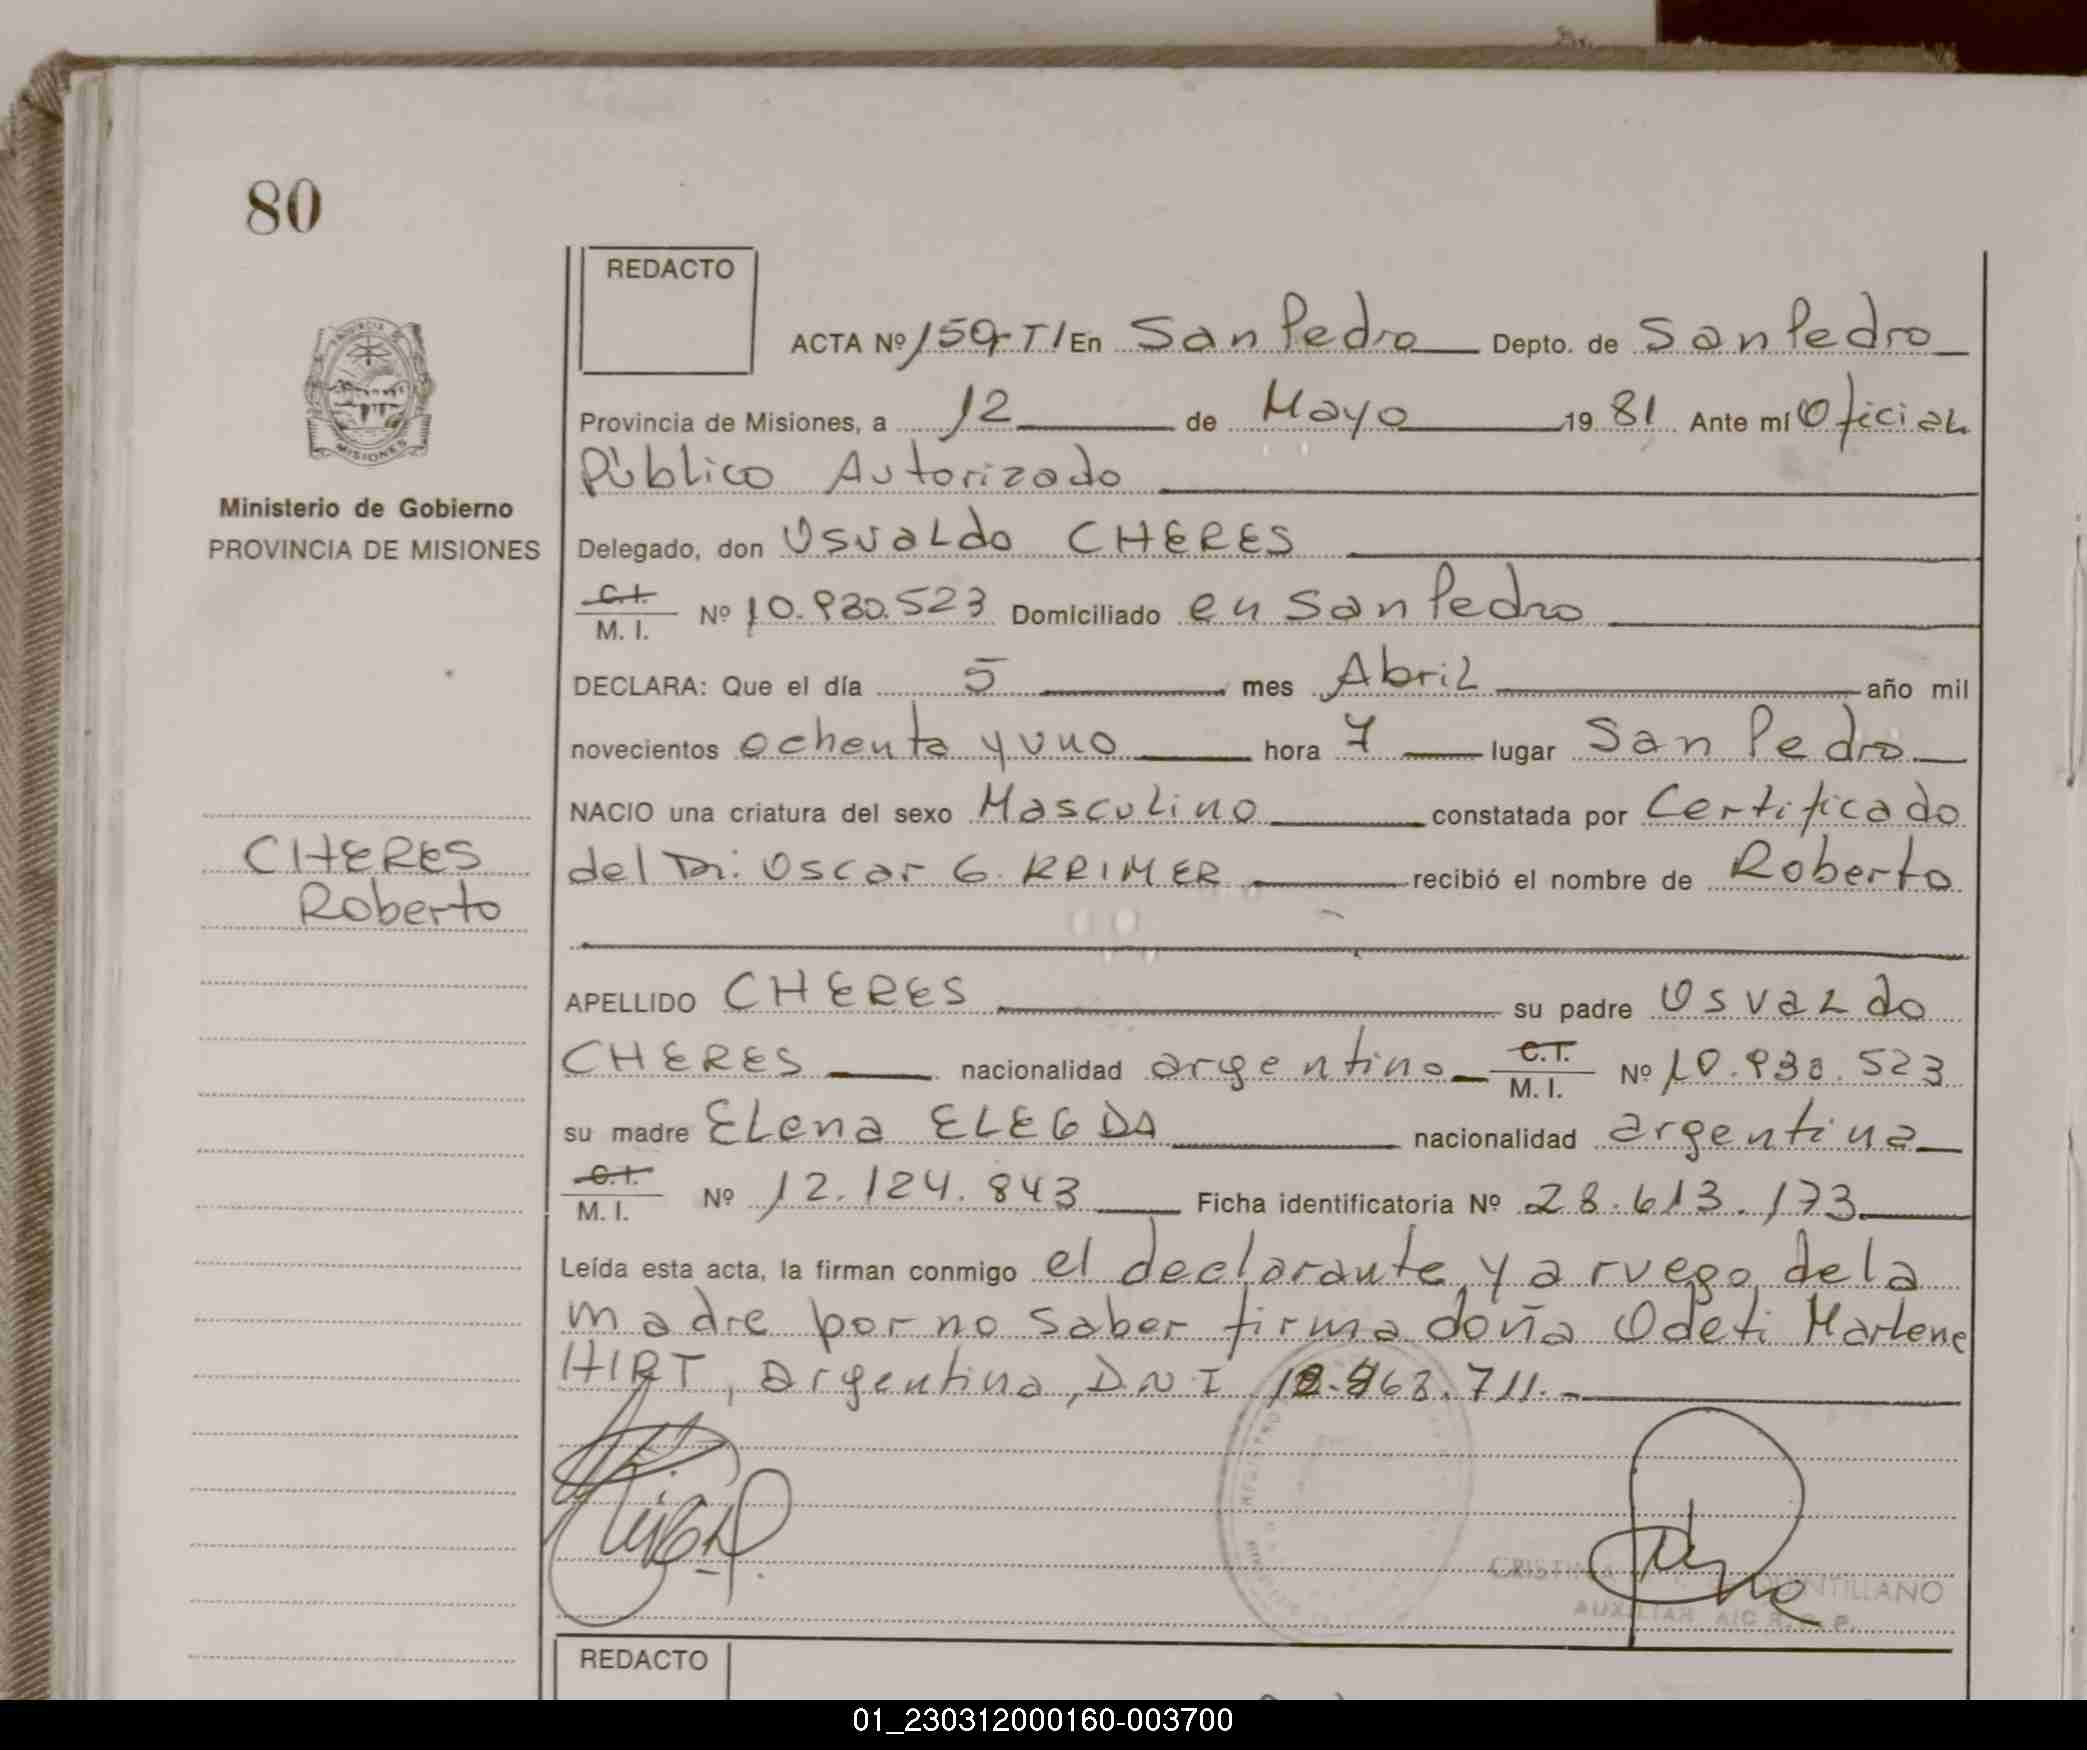 80
REDACTO
ACTA Nº 159-T I En San Pedro Depto. de San Pedro
Provincia de Misiones, a 12 de Mayo 1981 Ante mí Oficial
Público Autorizado
Ministerio de Gobierno
PROVINCIA DE MISIONES
Delegado, don Osvaldo CHERES
C.I. M. I. Nº 10.930.523 Domiciliado en San Pedro
DECLARA: Que el día 5 mes Abril año mil
novecientos ochenta y uno hora 7 lugar San Pedro
NACIO una criatura del sexo Masculino constatada por Certificado
CHERES
Roberto
del Dr. Oscar G. KRIMER recibió el nombre de Roberto
APELLIDO CHERES su padre Osvaldo
CHERES nacionalidad argentino C.I. M. I. Nº 10.930.523
su madre Elena ELEGDA nacionalidad argentina
C.I. M. I. Nº 12.124.843 Ficha identificatoria Nº 28.613.173
Leída esta acta, la firman conmigo el declarante y a ruego de la
madre por no saber firma doña Odeti Marlene
HIRT, argentina, D.N.I
CRISTINA QUINTILLANO
AUXILIAR
REDACTO
01_230312000160-003700